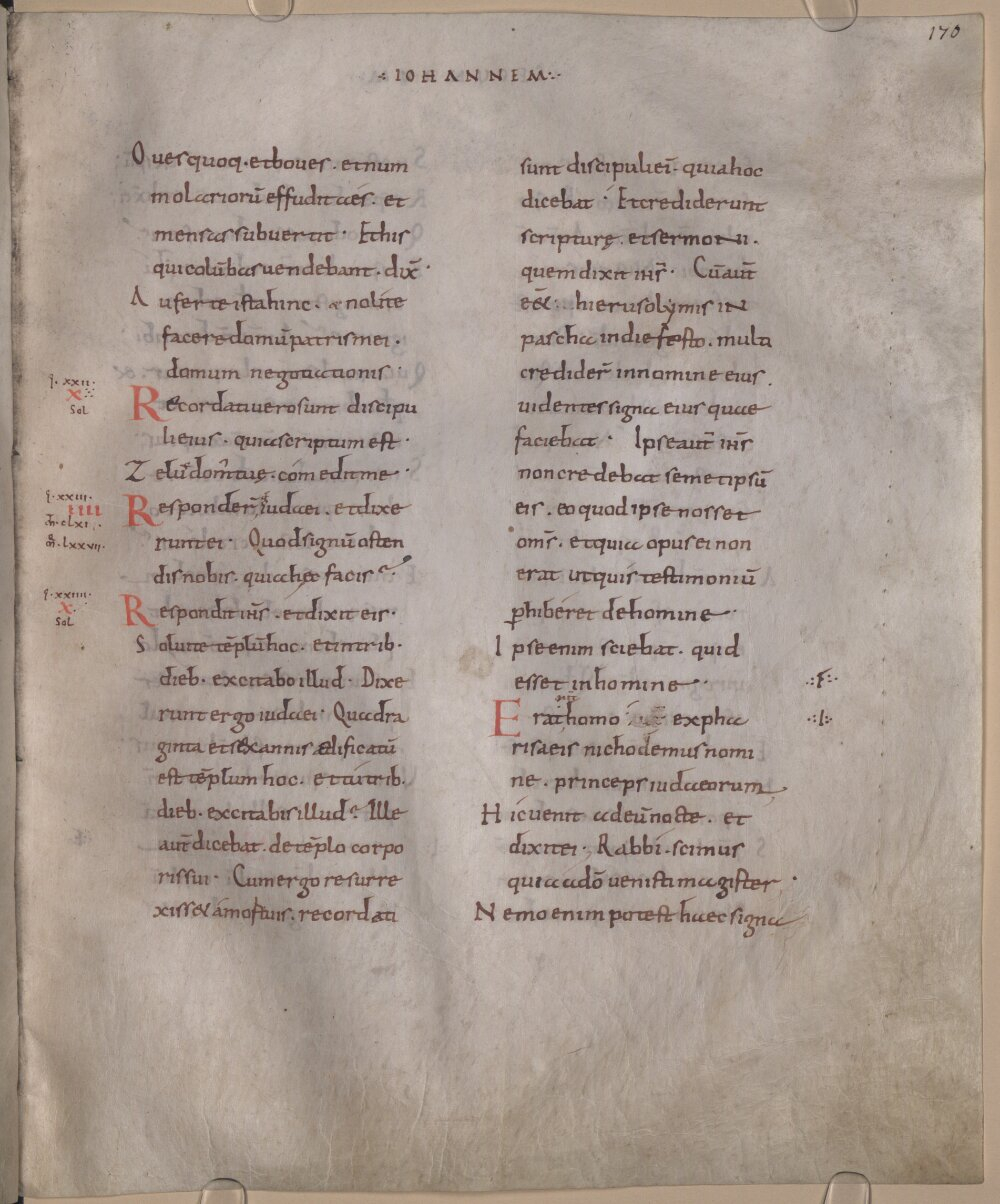 170
·:IOHANNEM:·
Oues quoq. et boues. et num
molariorū effudit aes. et
mensas subuertit· Et his
qui colūbas uendebant. dix̄·
Auferte ista hinc. & nolite
facere domū patris mei·
domum negotiationis·
ł. xxii.
x
Sol
Recordati uero sunt discipu
li eius. quia scriptum est·
Zelus dom̄ tuę. comedit me·
ł. xxiii.
IIII
m̄. clxi.
lxxvii.
Responderᷣ iudaei. et dixe
runt ei· Quod signū osten
dis nobis. quia hęc facis?
ł. xxiiii.
x
Sol
Respondit ih̄s. et dixit eis·
Soluite tēplū hoc. et in trib.
dieb. excitabo illud· Dixe
runt ergo iudaei· Quadra
ginta et sex annis ædificatū
est tēplum hoc. et tu in trib.
dieb. excitabis illud? Ille
aut̄ dicebat. de tēplo corpo
ris sui· Cum ergo resurre
xiss& a mortuis. recordati
sunt discipuli ei᷒. quia hoc
dicebat· Et crediderunt
scripturę. et sermoni.
quem dixit ih̄s· Cū aut̄
ee̅& hierusolymis in
pascha in die festo. multi
credider̄ in nomine eius.
uidentes signa eius quae
faciebat· Ipse aut̄ ih̄s
non credebat semetipsū
eis. eo quod ipse nosset
om̄s. et quia opus ei non
erat ut quis testimoniū
ꝑhiberet de homine·
Ipse enim sciebat. quid
esset in homine·
.:F:.
Erat homo ex pha
.:I:.
risaeis nichodemus nomi
ne. princeps iudaeorum
Hic uenit ad eū nocte. et
dixit ei· Rabbi. scimus
quia a dō uenisti magister·
Nemo enim potest haec signa